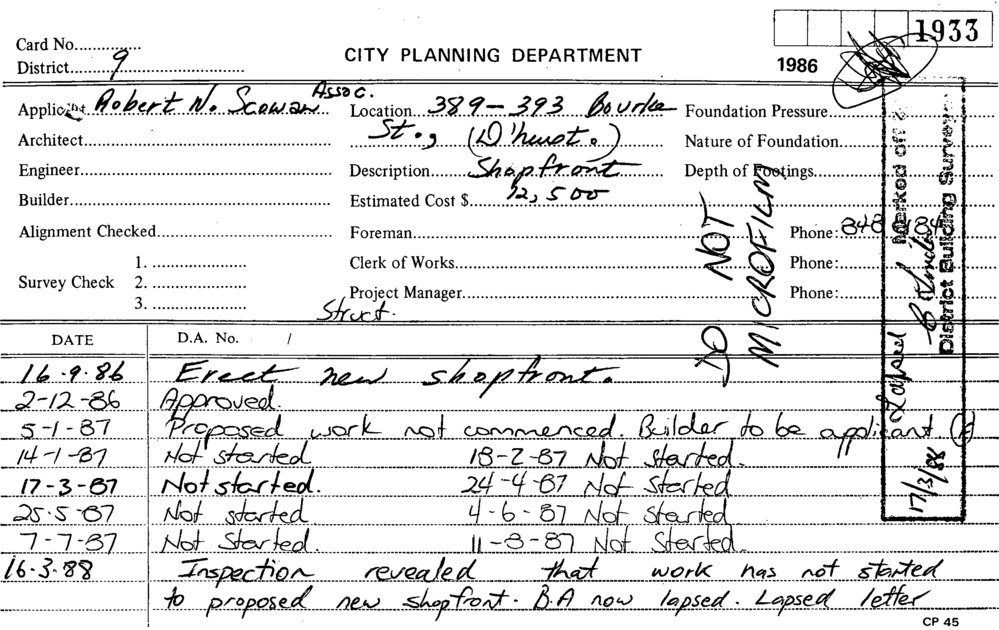 1933
Card No.
CITY PLANNING DEPARTMENT
1986
District 9
Applicant Robert N. Scowan Assoc. Location 389-393 Bourke Foundation Pressure
Architect St., (D'hurst.) Nature of Foundation
Engineer Description Shopfront Depth of Footings
Builder Estimated Cost $ 12,500
Alignment Checked Foreman Phone: 848
Clerk of Works Phone:
Survey Check 1. 2. 3.
Project Manager Phone:
Struct.
DO NOT MICROFILM
Marked off
District Building Surveyor
Lapsed
17/3/88
DATE D.A. No. /
16.9.86 Erect new shopfront.
2-12-86 Approved.
5-1-87 Proposed work not commenced. Builder to be applicant
14-1-87 Not started 18-2-87 Not Started.
17-3-87 Not started. 24-4-87 Not Started
25.5-87 Not started 4-6-87 Not Started
7-7-87 Not Started. 11-8-87 Not Started.
16.3.88 Inspection revealed that work has not started
to proposed new shopfront. B.A now lapsed. Lapsed letter
CP 45